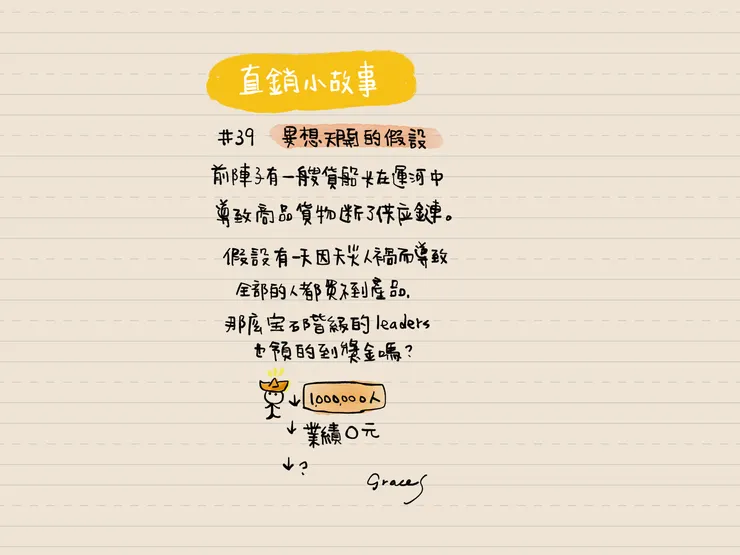 直銷小故事
#39 異想天開的假設
前陣子有一艘貨船卡在運河中
導致商品貨物斷了供应鏈。
假設有一天因天災人禍而導致
全部的人都買不到產品,
那麼宝石階級的leaders
也領的到獎金嗎?
1,000,000人
業績0元
?
Graces